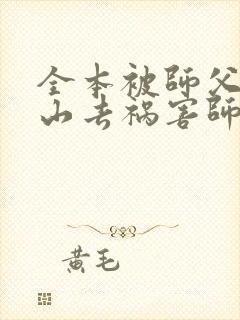 全本被師父
山去祸害師
黄毛